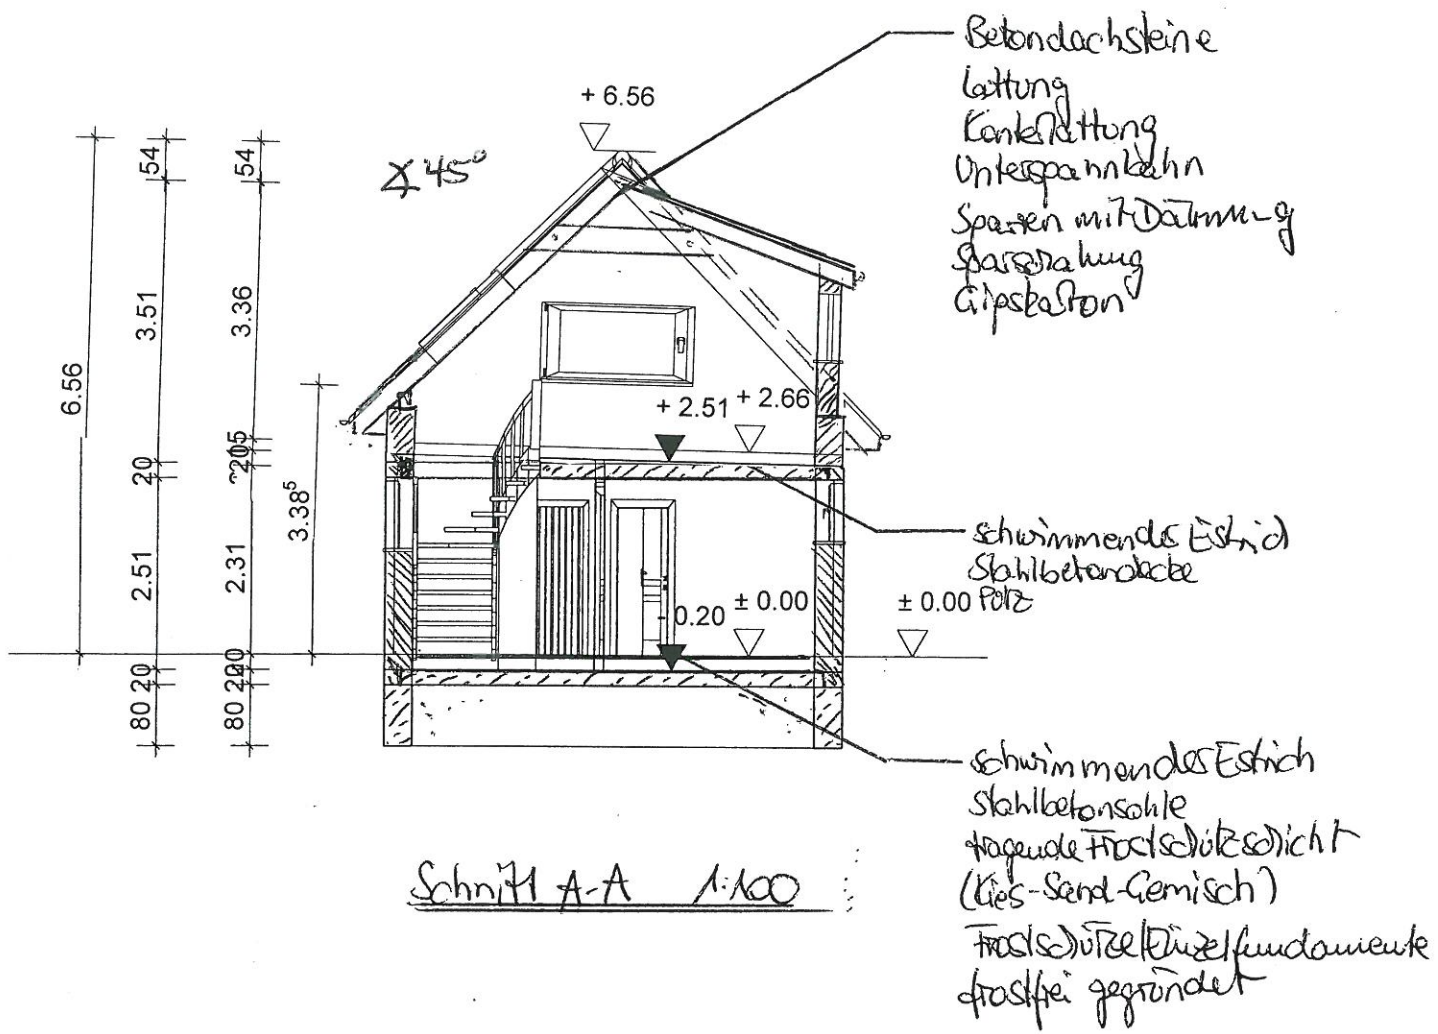 Betondachsteine
Lattung
Konterlattung
Unterspannbahn
Sparren mit Dämmung
Sparschalung
Gipskarton
+ 6.56
∡ 45°
54
54
3.51
3.36
6.56
+ 2.51
+ 2.66
15
20
20
3.38⁵
2.51
2.31
schwimmendes Estrich
Stahlbetondecke
Putz
- 0.20
± 0.00
± 0.00
20
20
20
80
80
schwimmendes Estrich
Stahlbetonsohle
tragende Frostschutzschicht
(Kies-Sand-Gemisch)
Frostschürze/Einzelfundamente
frostfrei gegründet
Schnitt A-A 1:100